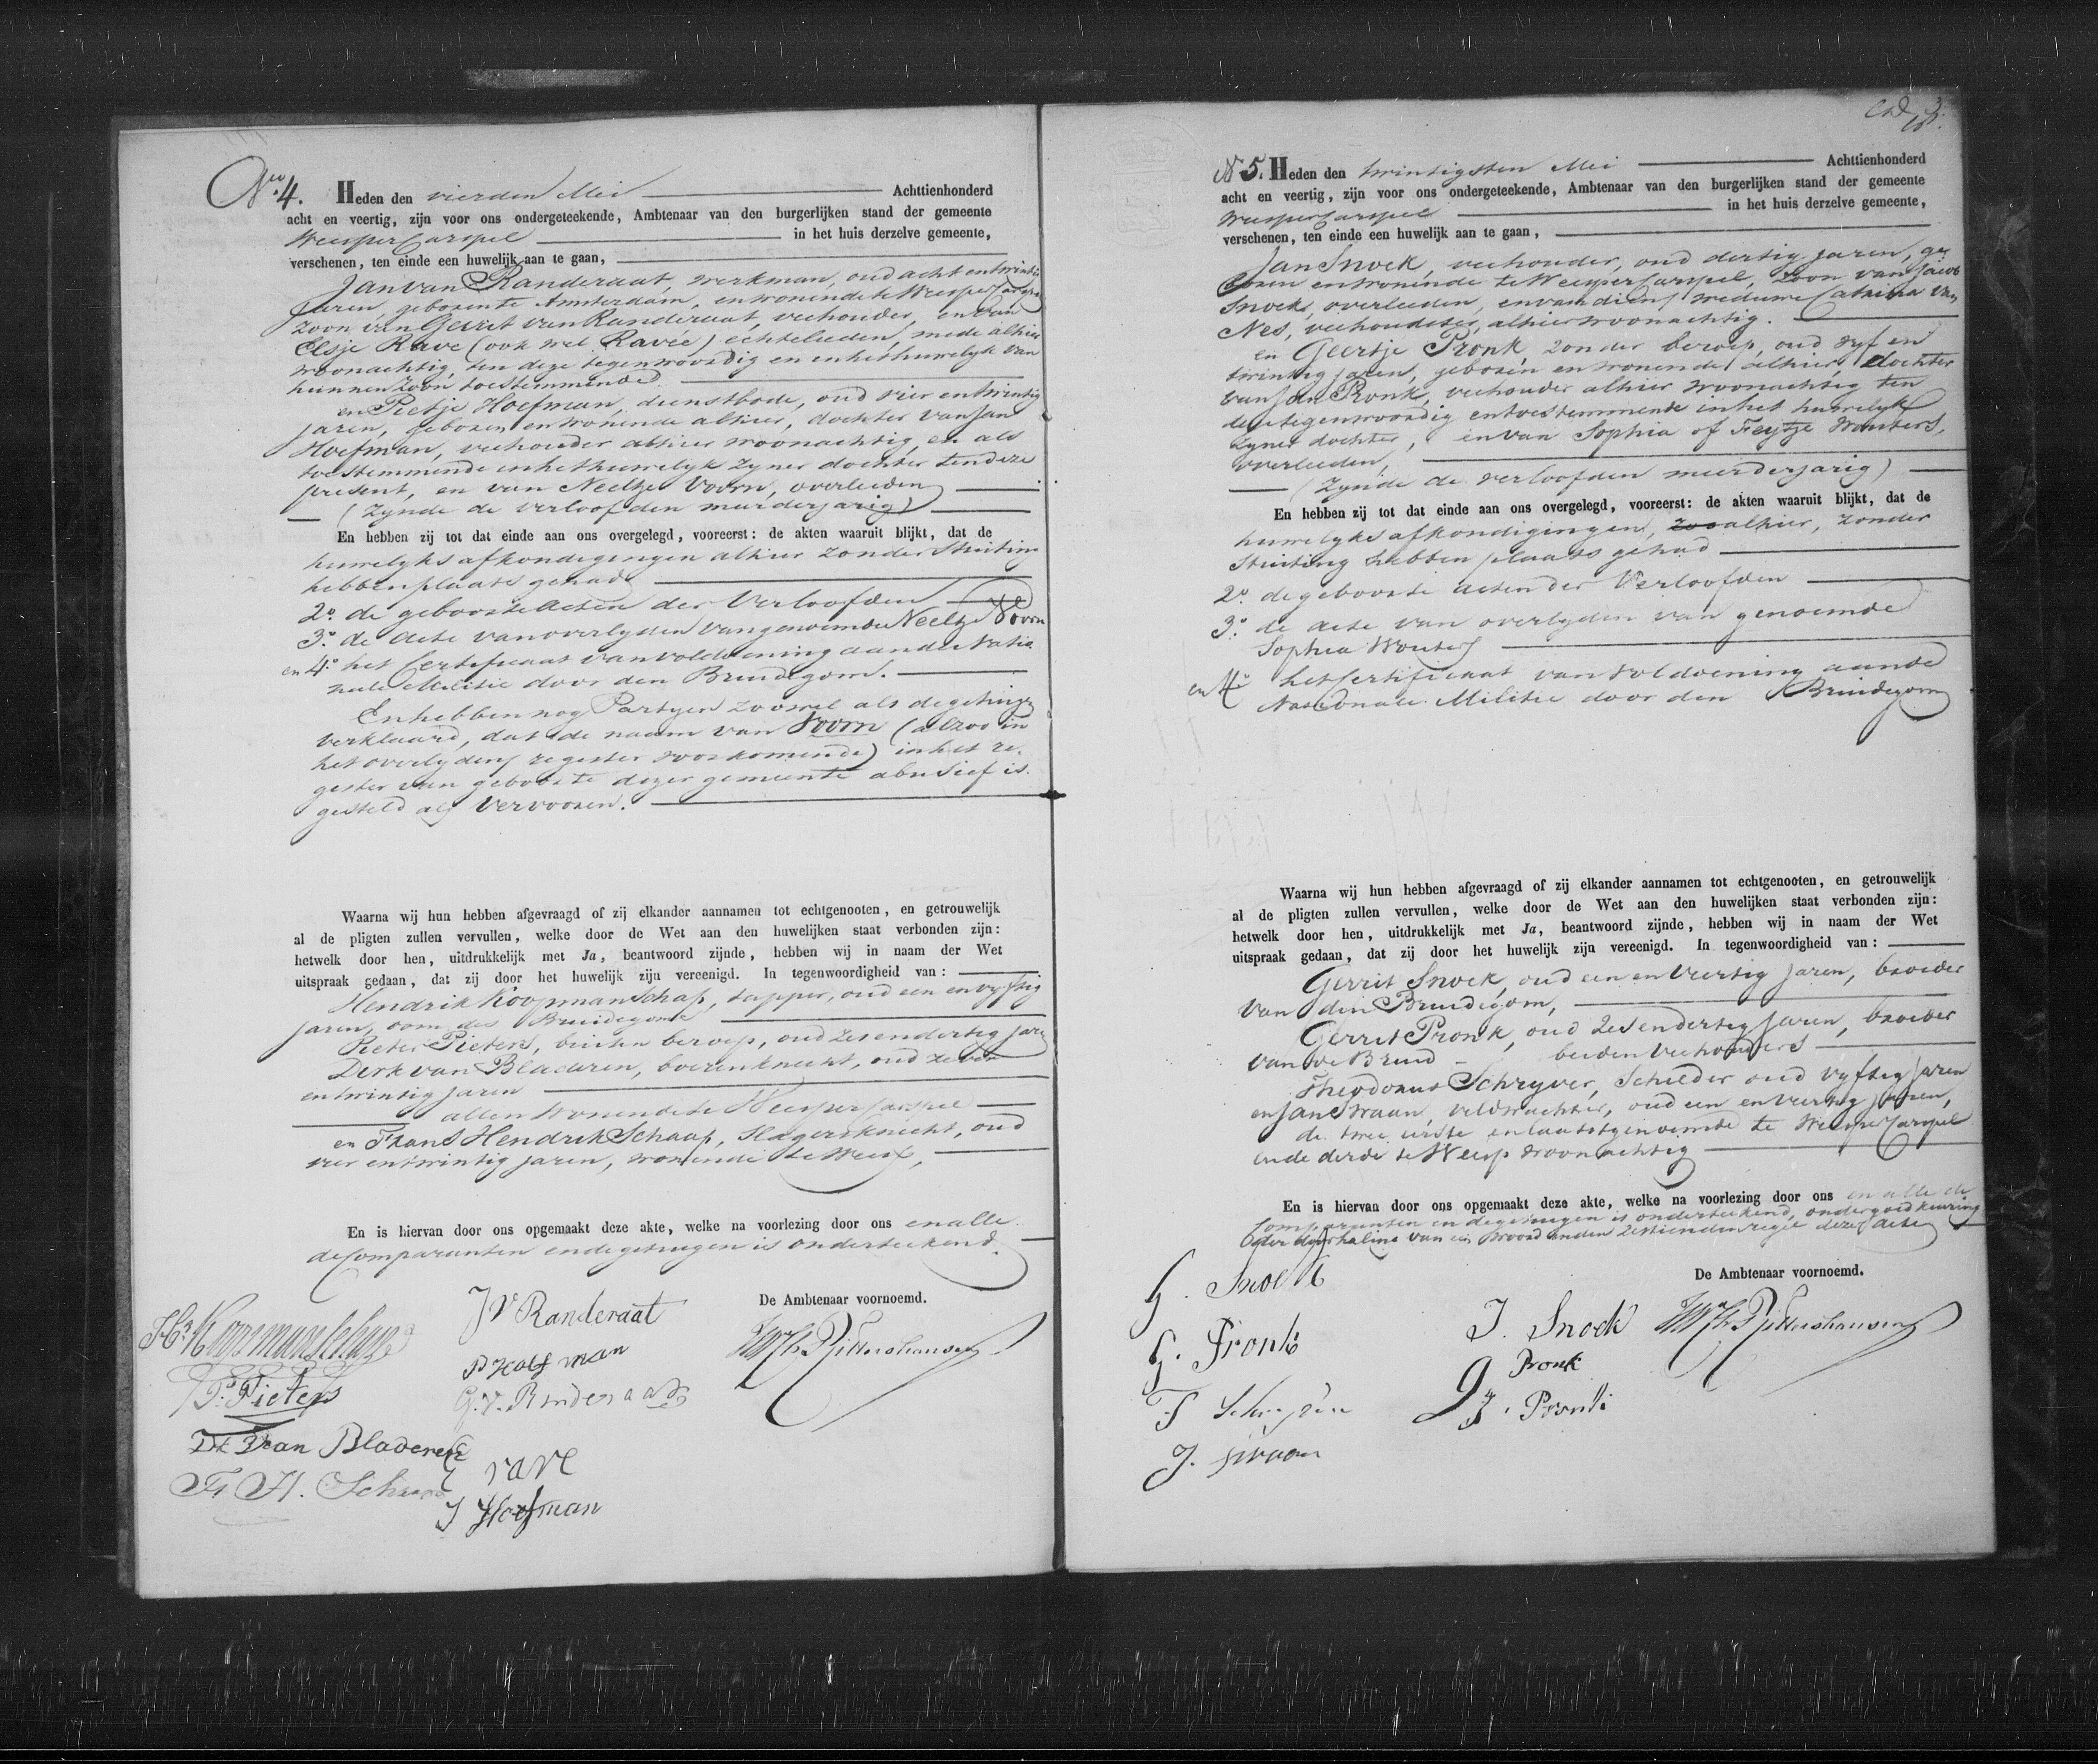 No. 4. Heden den vierden Mei Achttienhonderd
acht en veertig, zijn voor ons ondergeteekende, Ambtenaar van den burgerlijken stand der gemeente
Weesper Carspel in het huis derzelve gemeente,
verschenen, ten einde een huwelijk aan te gaan,
Jan van Randeraat, werkman, oud acht en twintig
Jaren, geboren te Amsterdam, en wonende te Weesper Carspel
zoon van Gerrit van Randeraat, veehouder, en van
Elsje Rave (ook wel Ravée) echtelieden, mede alhier
woonachtig, ten deze tegenwoordig en in het huwelyk van
hunnen zoon toestemmende.
en Pietje Hoefman, dienstbode, oud vier en twintig
jaren, geboren en wonende alhier, dochter van Jan
Hoefman, veehouder alhier woonachtig, en als
toestemmende in het huwelyk zyner dochter ten deze
present, en van Neeltje Voorn, overleden
(zynde de verloofden meerderjarig)
En hebben zij tot dat einde aan ons overgelegd, vooreerst: de akten waaruit blijkt, dat de
huwelyks afkondigingen alhier zonder Stuiting
hebben plaats gehad
2o. de geboorte Acten der Verloofden
3o. de Acte van overlyden van genoemde Neeltje Voorn
en 4o. het Certificaat van voldoening aan de Natio
nale Militie door den Bruidegom.
En hebben nog Partyen zoowel als de getuigen
verklaard, dat de naam van Voorn (alzoo in
het overlydens register voorkomende) in het re-
gister van geboorte dezer gemeente abusief is
gesteld als Vervooren.
Waarna wij hun hebben afgevraagd of zij elkander aannamen tot echtgenooten, en getrouwelijk
al de pligten zullen vervullen, welke door de Wet aan den huwelijken staat verbonden zijn:
hetwelk door hen, uitdrukkelijk met Ja, beantwoord zijnde, hebben wij in naam der Wet
uitspraak gedaan, dat zij door het huwelijk zijn vereenigd. In tegenwoordigheid van:
Hendrik Koopmanschap, tapper, oud een en vyftig
jaren, oom des Bruidegoms
Pieter Pieters, buiten beroep, oud zes en dertig jaren
Derk van Bladeren, boerenknecht, oud zeven
en twintig jaren
allen wonende te Weesper Carspel
en Frans Hendrik Schaap, Slagersknecht, oud
vier en twintig jaren, wonende te Weesp,
En is hiervan door ons opgemaakt deze akte, welke na voorlezing door ons en alle
de Comparanten en de getuigen is onderteekend.
De Ambtenaar voornoemd.
Hk Koopmanschap
J V Randeraat
P Hoefman
P. Pieters
G. V. Randeraat
Dk Van Bladeren
E rave
Fs H. Schaap
J Hoefman
No 5. Heden den twintigsten Mei Achttienhonderd
acht en veertig, zijn voor ons ondergeteekende, Ambtenaar van den burgerlijken stand der gemeente
Weesper Carspel in het huis derzelve gemeente,
verschenen, ten einde een huwelijk aan te gaan,
Jan Snoek, veehouder, oud dertig jaren, ge
boren en wonende te Weesper Carspel, zoon van Jacob
Snoek, overleden, en van diens weduwe Catrina van
Nes, veehoudster, alhier woonachtig.
en Geertje Pronk, zonder beroep, oud vyf en
twintig jaren, geboren en wonende alhier, dochter
van Jan Pronk, veehouder alhier woonachtig ten
deze tegenwoordig en toestemmende in het huwelyk
zyner dochter, en van Sophia of Feytje Wouters,
overleden,
(zynde de verloofden meerderjarig)
En hebben zij tot dat einde aan ons overgelegd, vooreerst: de akten waaruit blijkt, dat de
huwelyks afkondigingen, zoo alhier, zonder
Stuiting hebben plaats gehad
2o. de geboorte Acten der Verloofden
3o. de acte van overlyden van genoemde
Sophia Wouters
en 4o het Certificaat van voldoening aan de
Nationale Militie door den Bruidegom
Waarna wij hun hebben afgevraagd of zij elkander aannamen tot echtgenooten, en getrouwelijk
al de pligten zullen vervullen, welke door de Wet aan den huwelijken staat verbonden zijn:
hetwelk door hen, uitdrukkelijk met Ja, beantwoord zijnde, hebben wij in naam der Wet
uitspraak gedaan, dat zij door het huwelijk zijn vereenigd. In tegenwoordigheid van:
Gerrit Snoek, oud een en veertig jaren, broeder
van den Bruidegom,
Gerrit Pronk, oud zes en dertig jaren, broeder
van de Bruid beiden veehouders
Theodorus Schryver, Schilder oud vyftig jaren
en Jan Swaan, veldwachter, oud een en veertig jaren,
de twee eerste en laatstgenoemde te Weesper Carspel
en de derde te Weesp woonachtig
En is hiervan door ons opgemaakt deze akte, welke na voorlezing door ons en alle de
Comparanten en de getuigen is onderteekend, onder goedkeuring
der doorhaling van een woord in den zestienden regel dezer acte
De Ambtenaar voornoemd.
G. Snoek
J. Snoek
G. Pronk
G Pronk
T Schryver
J. Pronk
J. Swaan